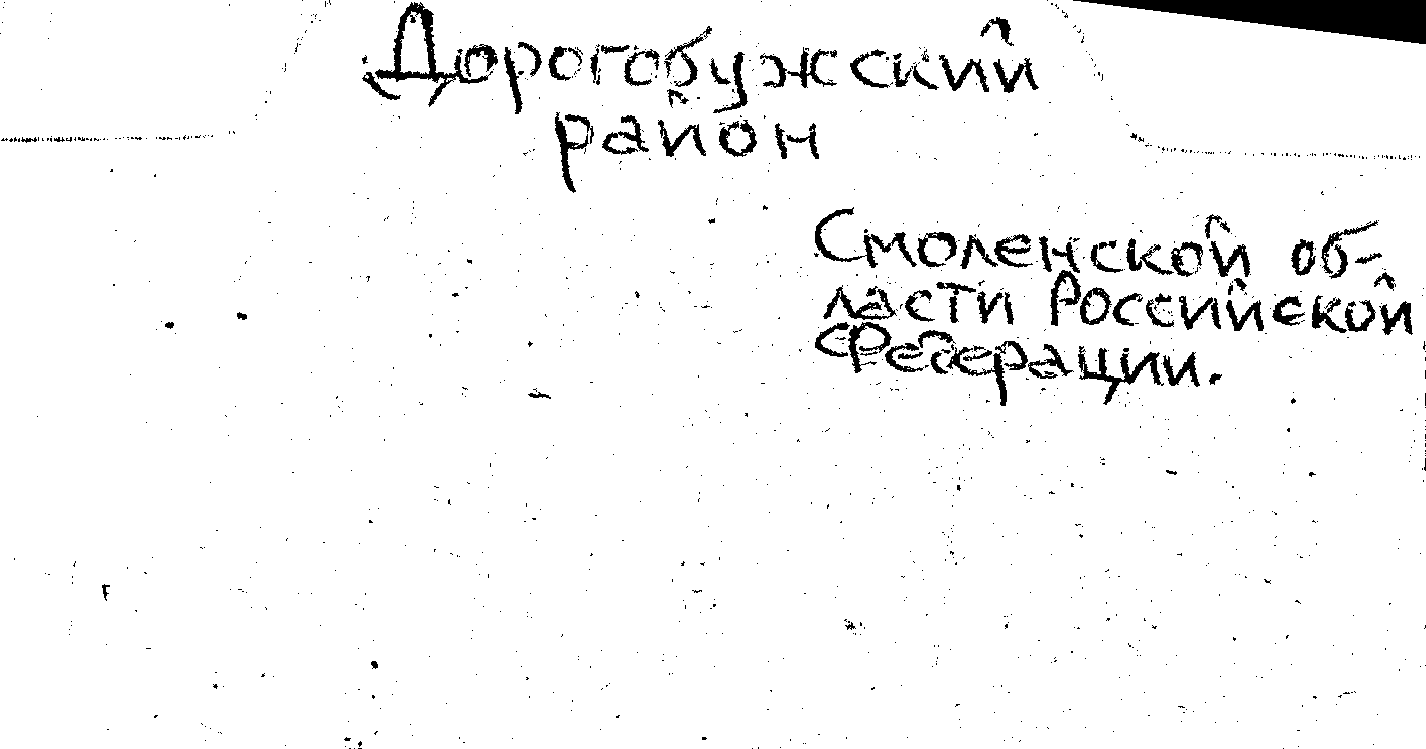 Дорогобужский
район
Смоленской об-
ласти Российской
Федерации.